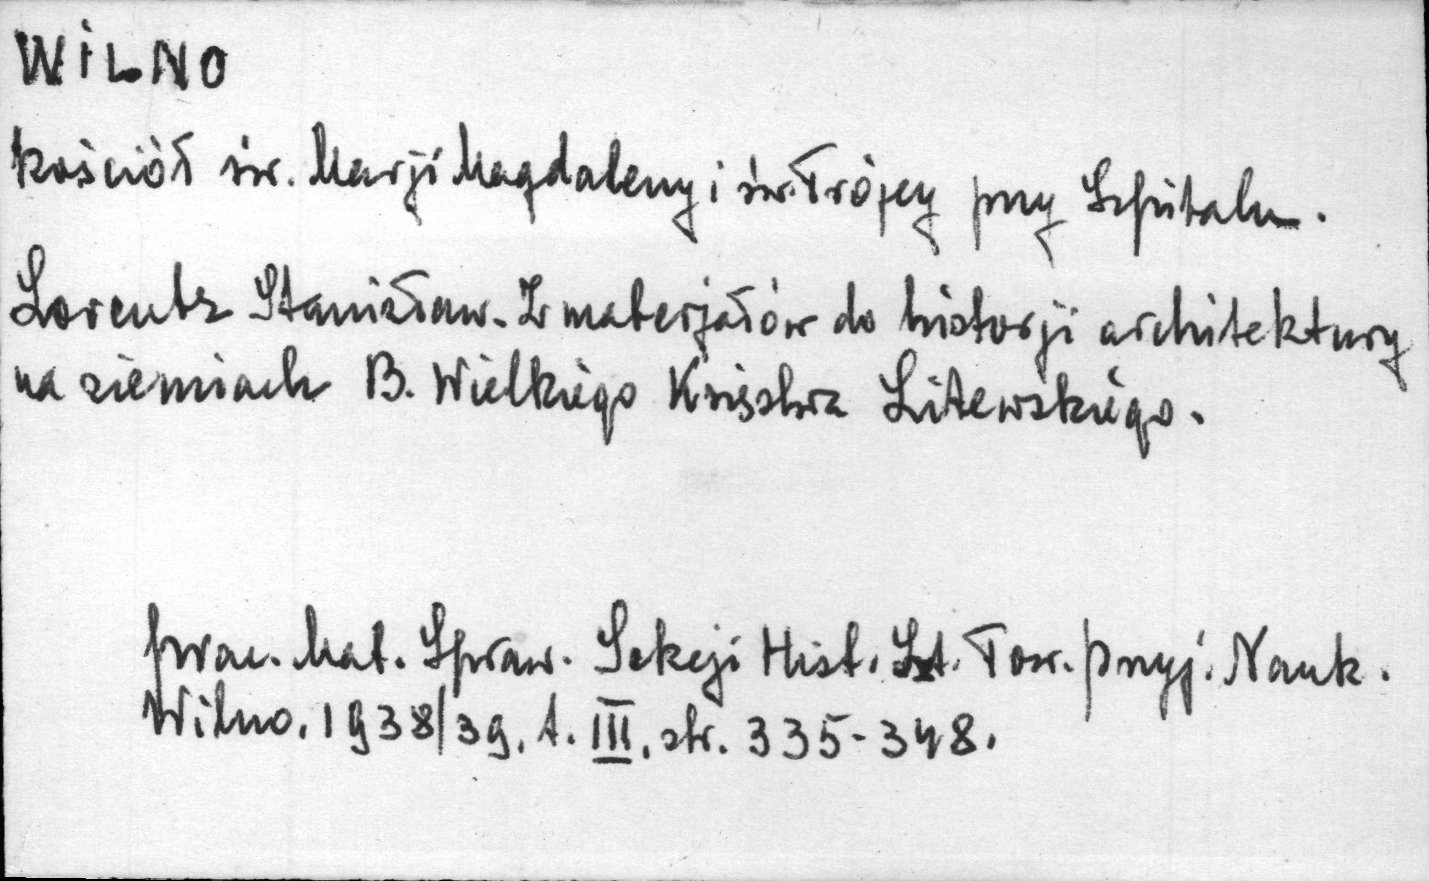 WILNO
kościół św. Marji Magdaleny i św. Trójcy przy Szpitalu.
Lorentz Stanisław. Z materjałów do historji architektury
na ziemiach B. Wielkiego Księstwa Litewskiego.
Prac. Mat. Spraw. Sekcji Hist. Szt. Tow. Przyj. Nauk.
Wilno. 1938/39. t. III. str. 335-348.